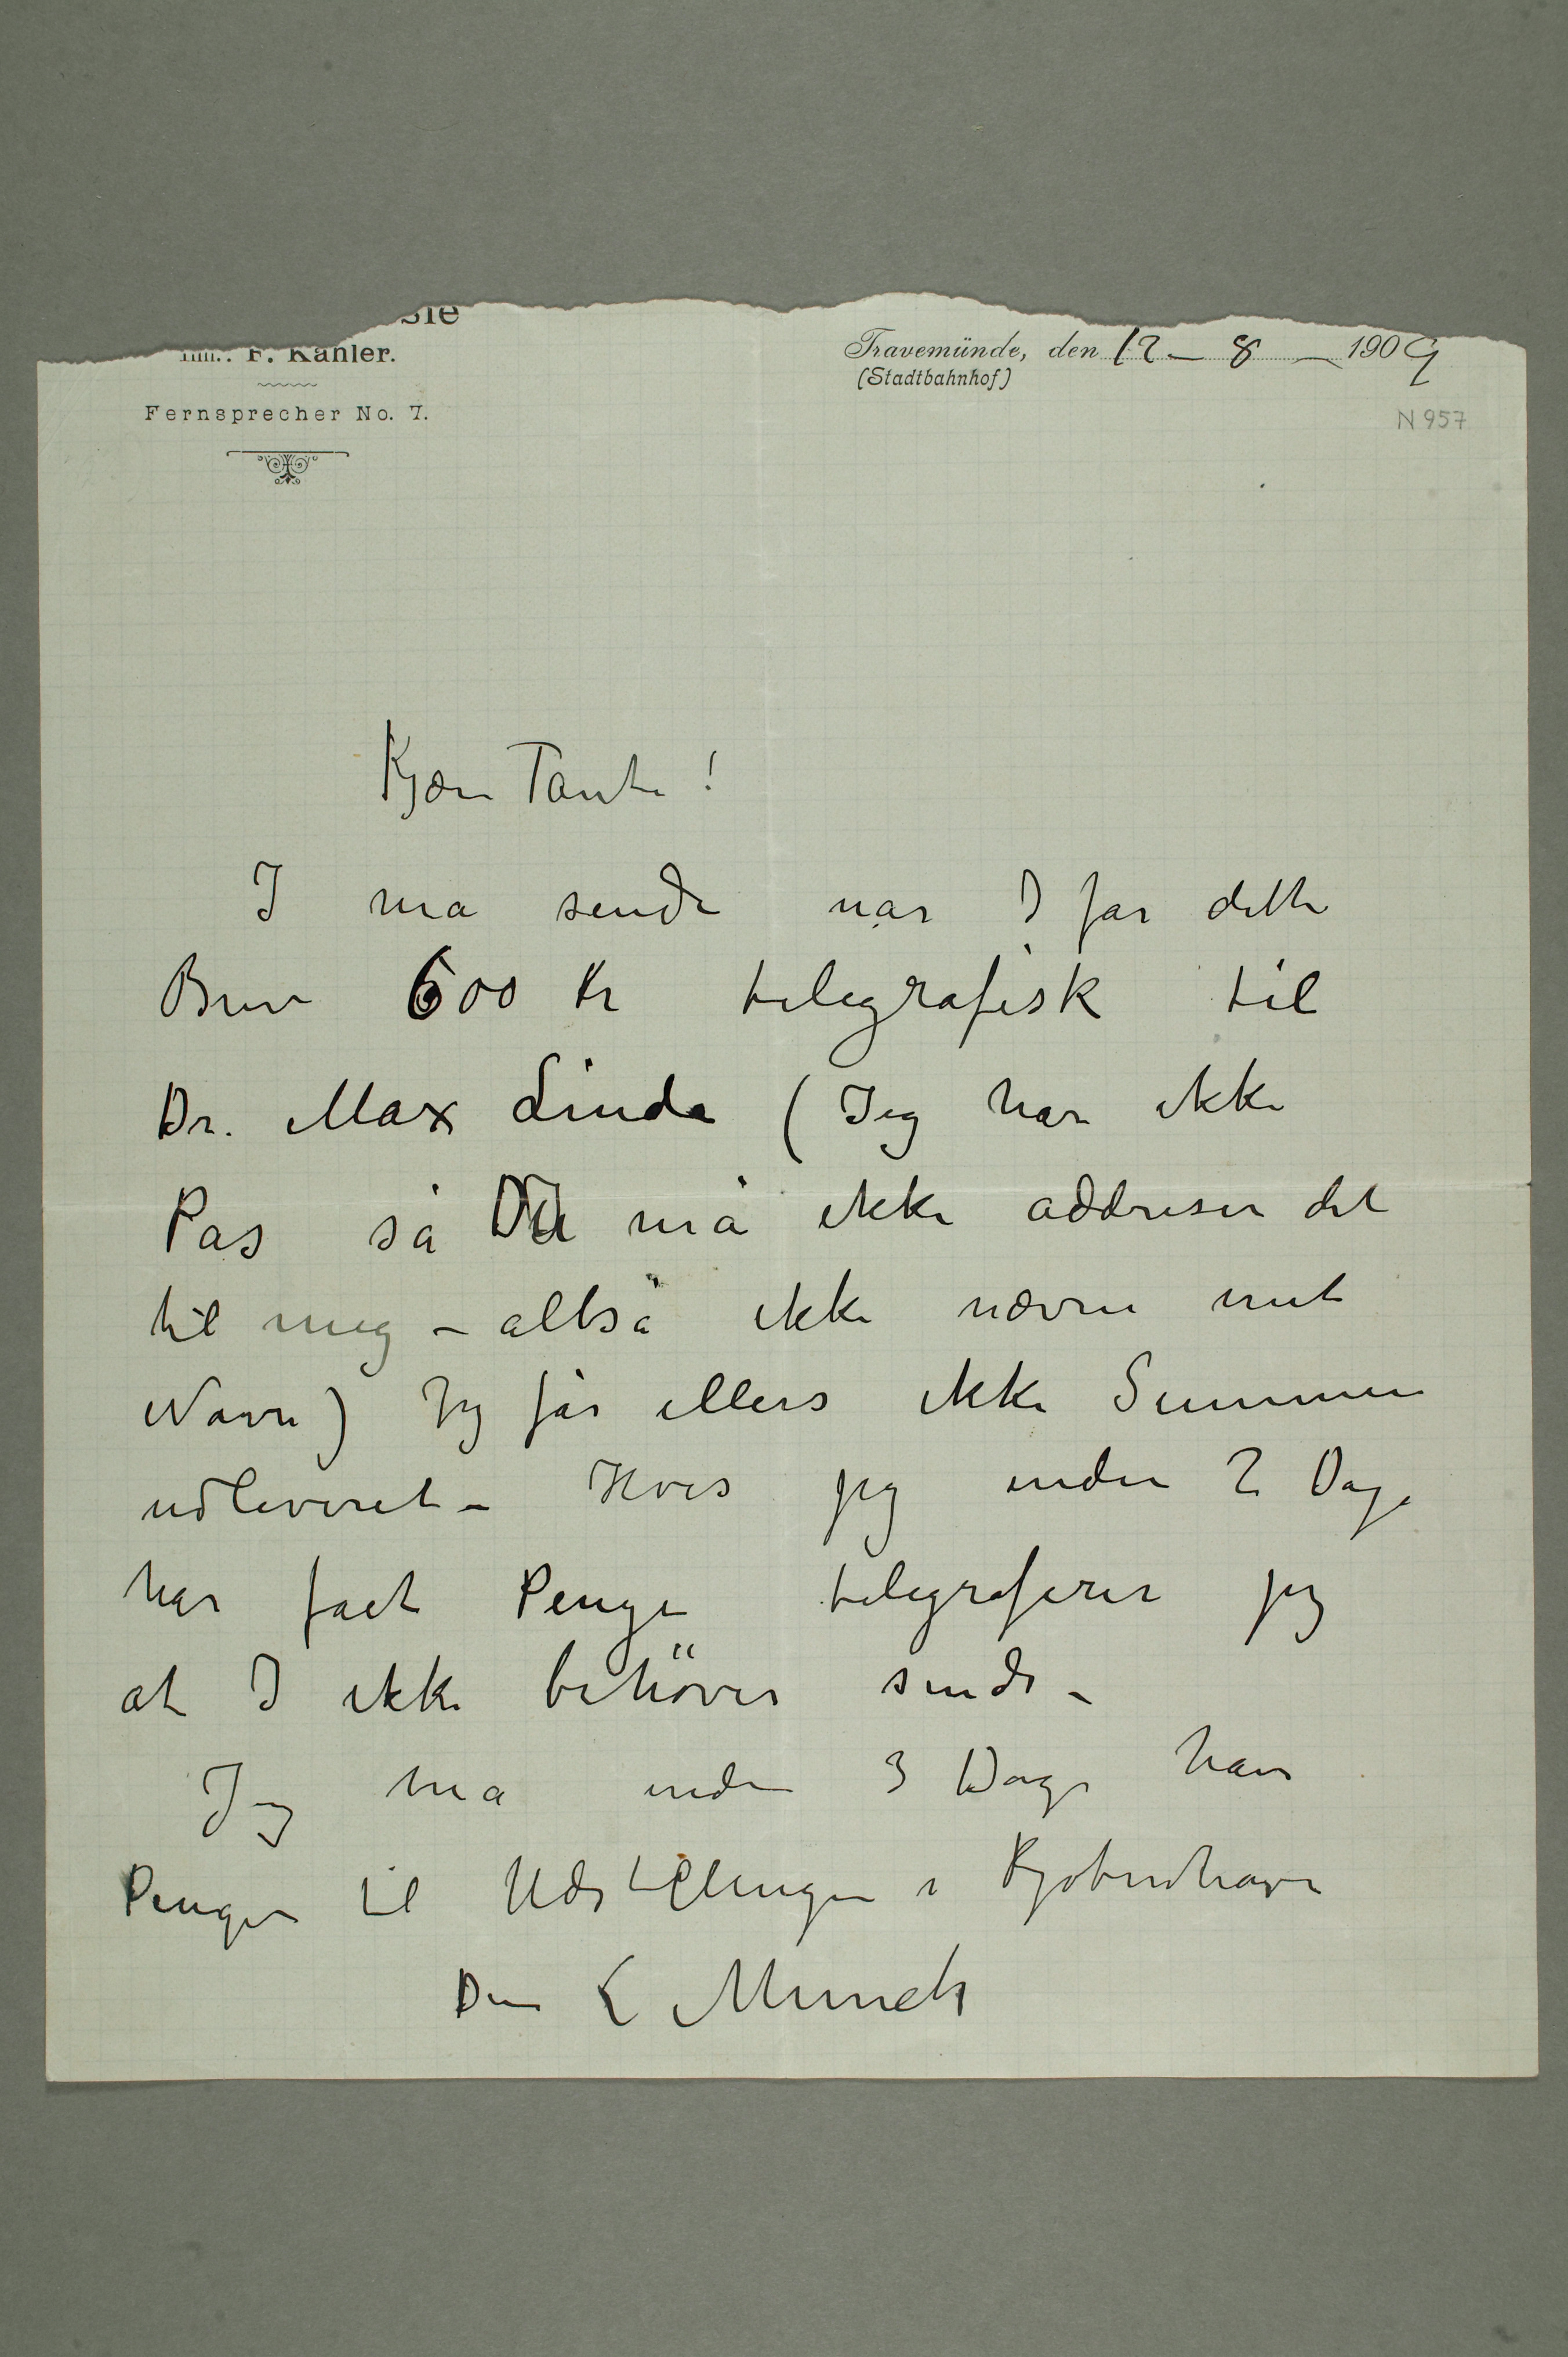 F. Kahler.
Fernsprecher No. 7.
Travemünde, den 12 – 8 – 1909
(Stadtbahnhof)
N 957
Kjære Tante!
I må sende når I får dette
Brev 600 Kr telegrafisk til
Dr. Max Linde (Jeg har ikke
Pas så Du må ikke addresere det
til meg – altså ikke nævne mit
Navn) Jeg får ellers ikke Summen
udleveret – Hvis jeg inden 2 Dage
har fået Penge telegraferer jeg
at I ikke behöver sende –
Jeg må inden 3 Dage have
Penger til Udstillingen i Kjøbenhavn
Din E Munch